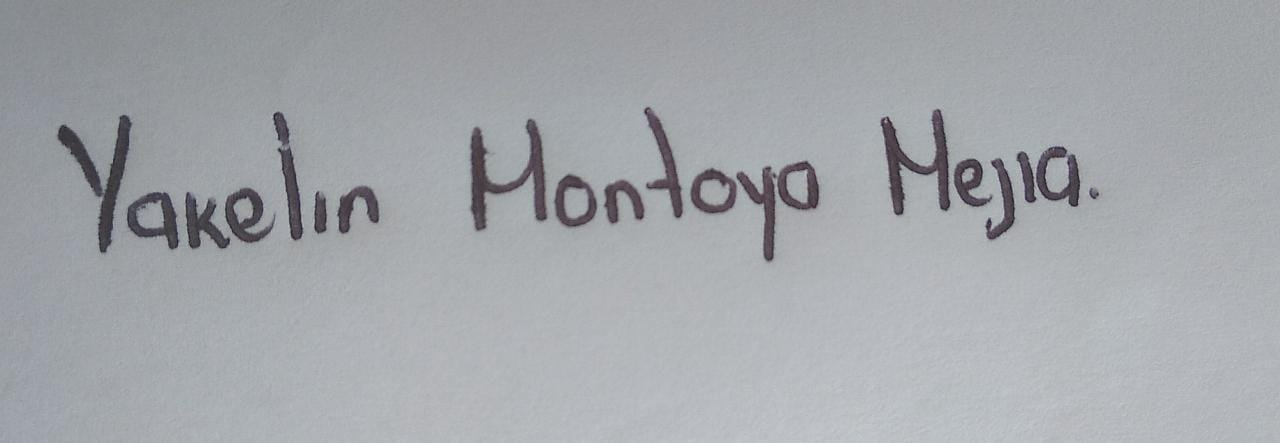 Yakelin Montoya Mejia.